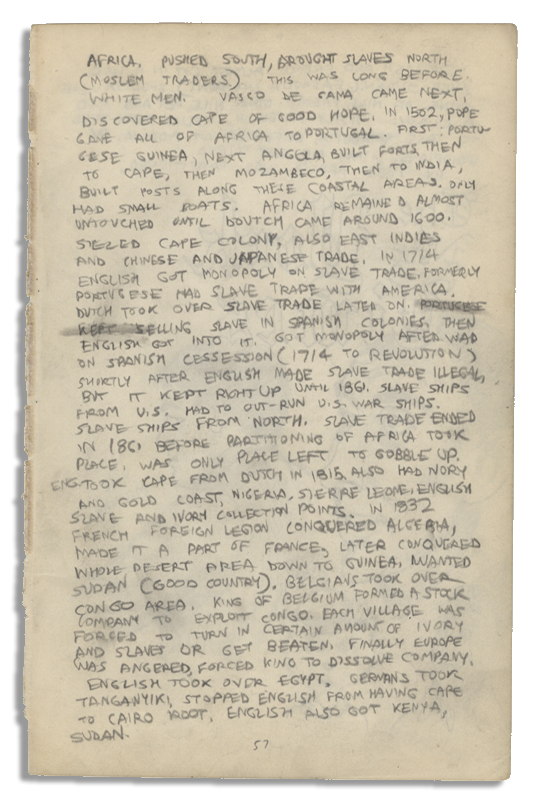 AFRICA. PUSHED SOUTH, BROUGHT SLAVES NORTH
(MOSLEM TRADERS) THIS WAS LONG BEFORE
WHITE MEN. VASCO DE GAMA CAME NEXT,
DISCOVERED CAPE OF GOOD HOPE. IN 1502, POPE
GAVE ALL OF AFRICA TO PORTUGAL. FIRST: PORTU-
GESE GUINEA, NEXT ANGOLA, BUILT FORTS, THEN
TO CAPE, THEN MOZAMBECO, THEN TO INDIA,
BUILT POSTS ALONG THESE COASTAL AREAS. ONLY
HAD SMALL BOATS. AFRICA REMAINED ALMOST
UNTOUCHED UNTIL DOUTCH CAME AROUND 1600.
SIEZED CAPE COLONY, ALSO EAST INDIES
AND CHINESE AND JAPANESE TRADE. IN 1714
ENGLISH GOT MONOPOLY ON SLAVE TRADE, FORMERLY
PORTUGESE HAD SLAVE TRADE WITH AMERICA.
DUTCH TOOK OVER SLAVE TRADE LATED ON. PORTUGESE
KEPT SELLING SLAVE IN SPANISH COLONIES, THEN
ENGLISH GOT INTO IT. GOT MONOPOLY AFTER WAR
ON SPANISH CESSESSION (1714 TO REVOLUTION)
SHORTLY AFTER ENGLISH MADE SLAVE TRADE ILLEGAL,
BUT IT KEPT RIGHT UP UNTIL 1861. SLAVE SHIPS
FROM U.S. HAD TO OUT-RUN U.S. WAR SHIPS.
SLAVE SHIPS FROM NORTH. SLAVE TRADE ENDED
IN 1861 BEFORE PARTITIONING OF AFRICA TOOK
PLACE, WAS ONLY PLACE LEFT TO GOBBLE UP.
ENG. TOOK CAPE FROM DUTCH IN 1815. ALSO HAD IVORY
AND GOLD COAST, NIGERIA, SIERRE LEONE, ENGLISH
SLAVE AND IVORY COLLECTION POINTS. IN 1832
FRENCH FOREIGN LEGION CONQUERED ALGERIA,
MADE IT A PART OF FRANCE, LATER CONQUERED
WHOLE DESERT AREA DOWN TO GUINEA, WANTED
SUDAN (GOOD COUNTRY). BELGIANS TOOK OVER
CONGO AREA. KING OF BELGIUM FORMED A STOCK
COMPANY TO EXPLOIT CONGO. EACH VILLAGE WAS
FORCED TO TURN IN CERTAIN AMOUNT OF IVORY
AND SLAVES OR GET BEATEN. FINALLY EUROPE
WAS ANGERED, FORCED KING TO DISSOLVE COMPANY.
ENGLISH TOOK OVER EGYPT. GERMANS TOOK
TANGANYIKI, STOPPED ENGLISH FROM HAVING CAPE
TO CAIRO ROOT. ENGLISH ALSO GOT KENYA,
SUDAN.
57